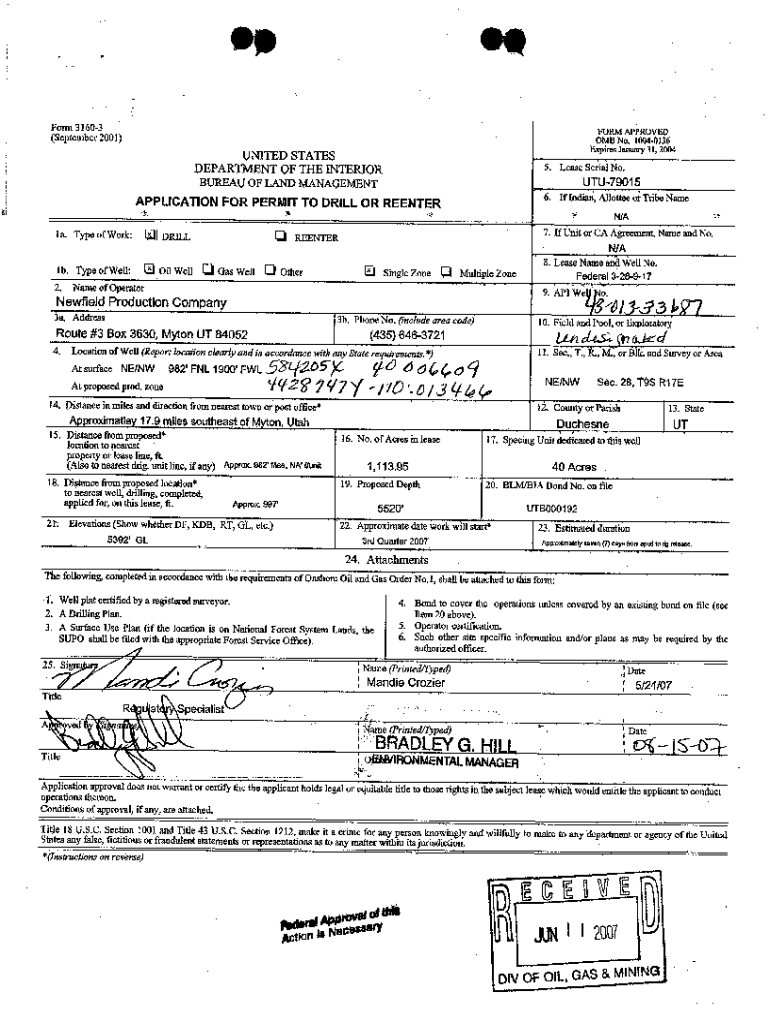 Form 3160-3
(September 2001)
FORM APPROVED
OMB No. 1004-0136
Expires January 31, 2004
UNITED STATES
DEPARTMENT OF THE INTERIOR
BUREAU OF LAND MANAGEMENT
APPLICATION FOR PERMIT TO DRILL OR REENTER
5. Lease Serial No.
UTU-79015
6. If Indian, Allottee or Tribe Name
N/A
1a. Type of Work: X DRILL REENTER
7. If Unit or CA Agreement, Name and No.
N/A
1b. Type of Well: X Oil Well Gas Well Other X Single Zone Multiple Zone
8. Lease Name and Well No.
Federal 3-28-9-17
2. Name of Operator
Newfield Production Company
9. API Well No.
43-013-33687
3a. Address
Route #3 Box 3630, Myton UT 84052
3b. Phone No. (include area code)
(435) 646-3721
10. Field and Pool, or Exploratory
Undesignated
4. Location of Well (Report location clearly and in accordance with any State requirements.*)
At surface NE/NW 982' FNL 1900' FWL 584205X 40.006609
At proposed prod. zone 4428747Y -110.013466
11. Sec., T., R., M., or Blk. and Survey or Area
NE/NW Sec. 28, T9S R17E
14. Distance in miles and direction from nearest town or post office*
Approximatlay 17.9 miles southeast of Myton, Utah
12. County or Parish
Duchesne
13. State
UT
15. Distance from proposed*
location to nearest
property or lease line, ft.
(Also to nearest drig. unit line, if any) Approx. 982' f/lse, NA' f/unit
16. No. of Acres in lease
1,113.95
17. Spacing Unit dedicated to this well
40 Acres
18. Distance from proposed location*
to nearest well, drilling, completed,
applied for, on this lease, ft. Approx. 997'
19. Proposed Depth
5520'
20. BLM/BIA Bond No. on file
UTB000192
21. Elevations (Show whether DF, KDB, RT, GL, etc.)
5392' GL
22. Approximate date work will start*
3rd Quarter 2007
23. Estimated duration
Approximately seven (7) days from spud to rig release.
24. Attachments
The following, completed in accordance with the requirements of Onshore Oil and Gas Order No.1, shall be attached to this form:
1. Well plat certified by a registered surveyor.
2. A Drilling Plan.
3. A Surface Use Plan (if the location is on National Forest System Lands, the
SUPO shall be filed with the appropriate Forest Service Office).
4. Bond to cover the operations unless covered by an existing bond on file (see
Item 20 above).
5. Operator certification.
6. Such other site specific information and/or plans as may be required by the
authorized officer.
25. Signature
Mandie Crozier
Name (Printed/Typed)
Mandie Crozier
Date
5/21/07
Title
Regulatory Specialist
Approved by (Signature)
Name (Printed/Typed)
BRADLEY G. HILL
Date
08-15-07
Title
ENVIRONMENTAL MANAGER
Application approval does not warrant or certify the the applicant holds legal or equitable title to those rights in the subject lease which would entitle the applicant to conduct
operations thereon.
Conditions of approval, if any, are attached.
Title 18 U.S.C. Section 1001 and Title 43 U.S.C. Section 1212, make it a crime for any person knowingly and willfully to make to any department or agency of the United
States any false, fictitious or fraudulent statements or representations as to any matter within its jurisdiction.
*(Instructions on reverse)
Federal Approval of this
Action is Necessary
RECEIVED
JUN 11 2007
DIV OF OIL, GAS & MINING